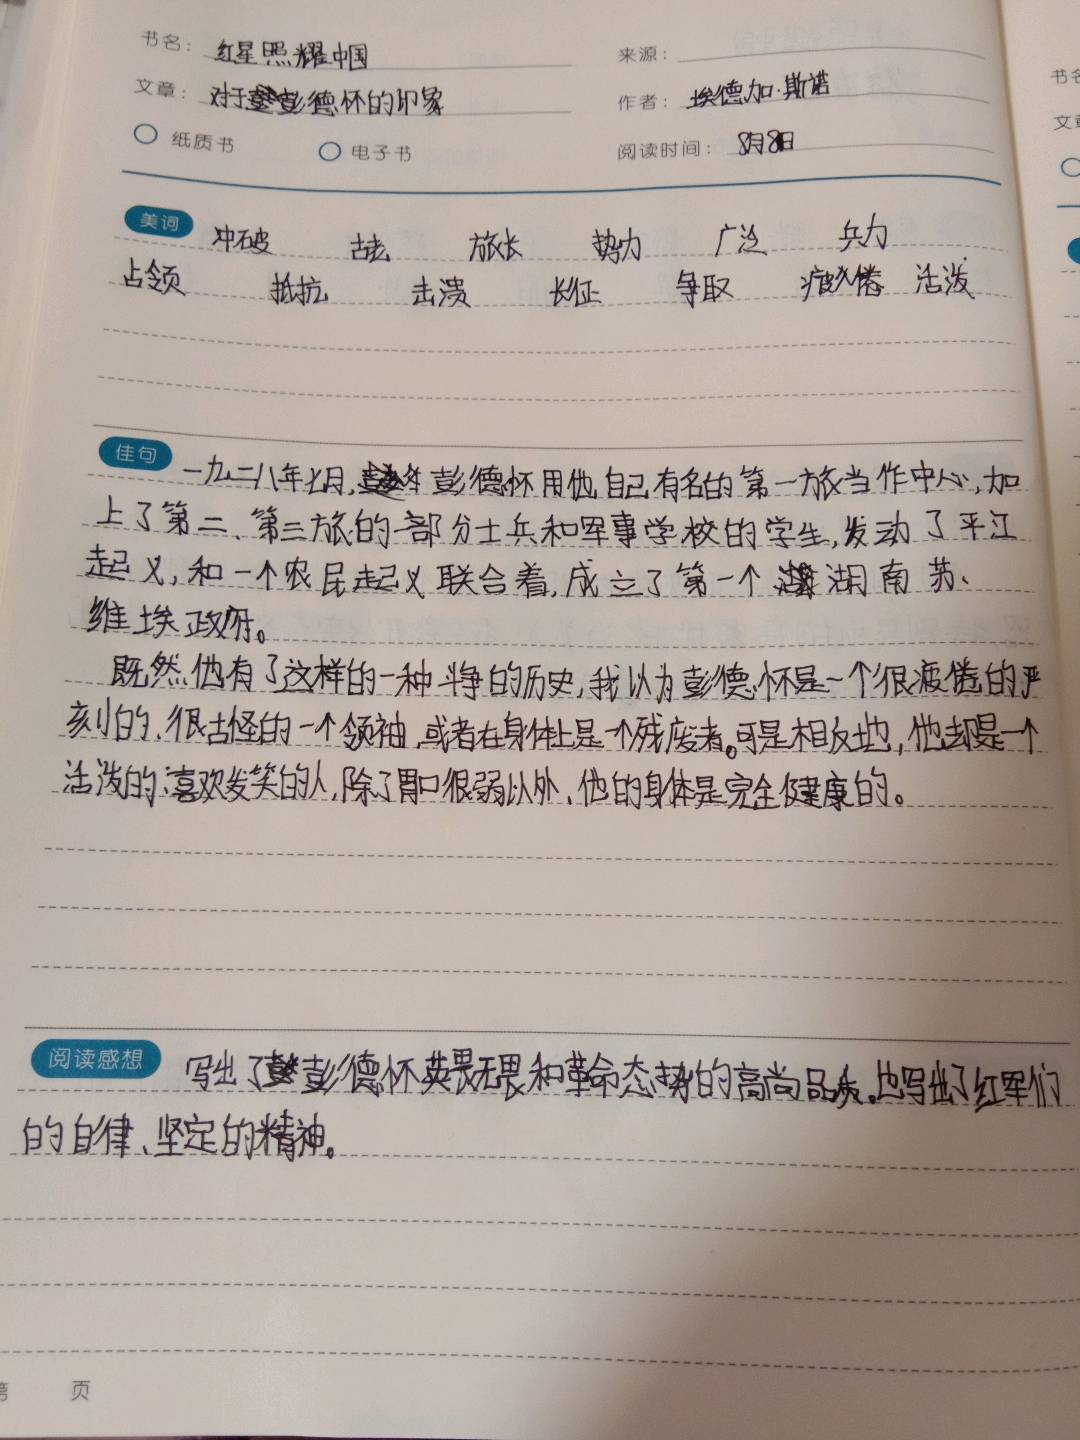 书名：红星照耀中国
来源：
文章：对于彭德怀的印象
作者：埃德加·斯诺
纸质书 电子书
阅读时间：8月8日
美词 冲破 旅长 势力 广泛 兵力
占领 抵抗 击溃 长征 争取 疲倦 活泼
佳句 一九二八年七月,彭德怀用他自己有名的第一旅当作中心,加
上了第二、第三旅的一部分士兵和军事学校的学生,发动了平江
起义,和一个农民起义联合着,成立了第一个湖南苏、
维埃政府。
既然他有了这样的一种斗争的历史,我以为彭德怀是一个很疲倦的严
刻的、很古怪的一个领袖,或者在身体上是一个残废者。可是相反地,他却是一个
活泼的、喜欢发笑的人,除了胃口很弱以外、他的身体是完全健康的。
阅读感想 写出了彭德怀英畏无畏和革命态势的高尚品质。也写出了红军们
的自律、坚定的精神。
页
书名
文章